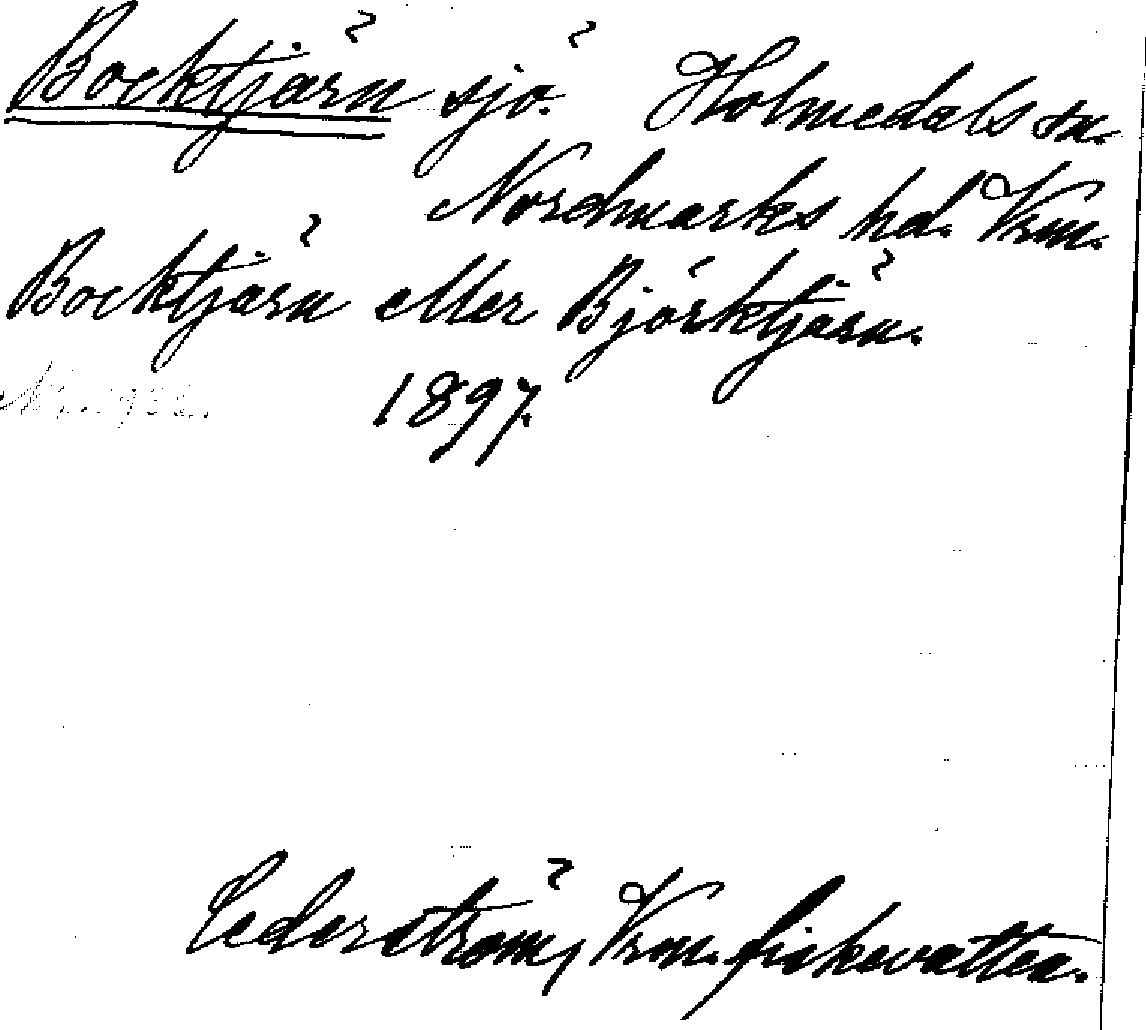 Bocktjärn sjö. Holmedals sn.
Nordmarks hd. Vrm.
Bocktjärn eller Björktjärn.
1897.
Cederström, Vrm. fiskevatten.